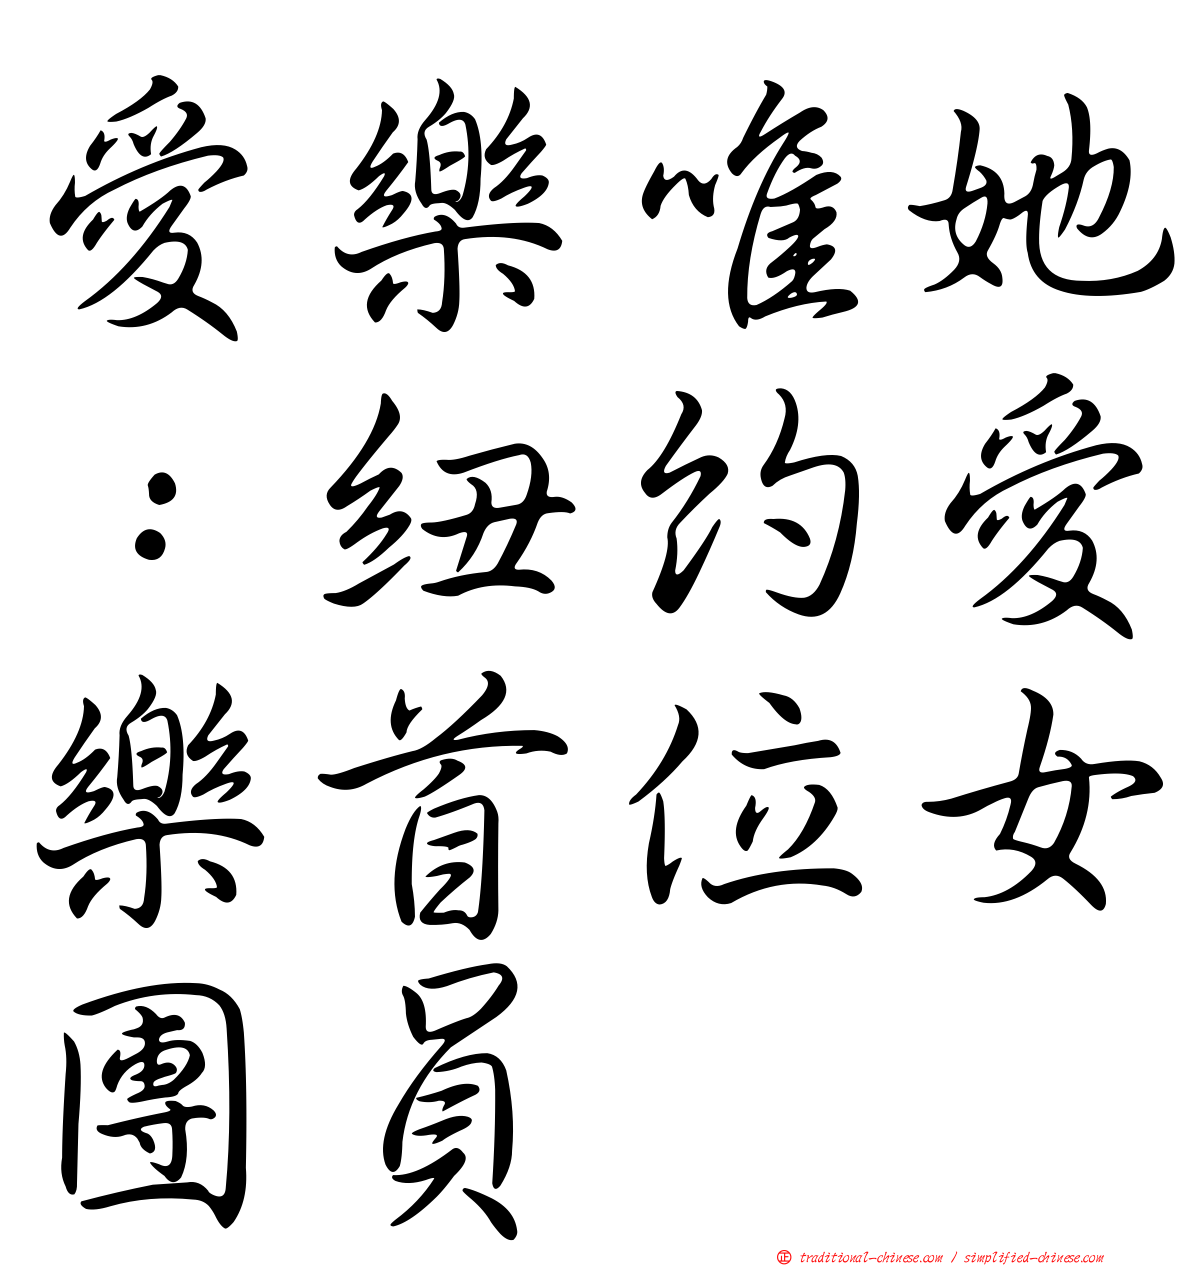 愛樂唯她
：紐約愛
樂首位女
團員
正 traditional-chinese.com / simplified-chinese.com